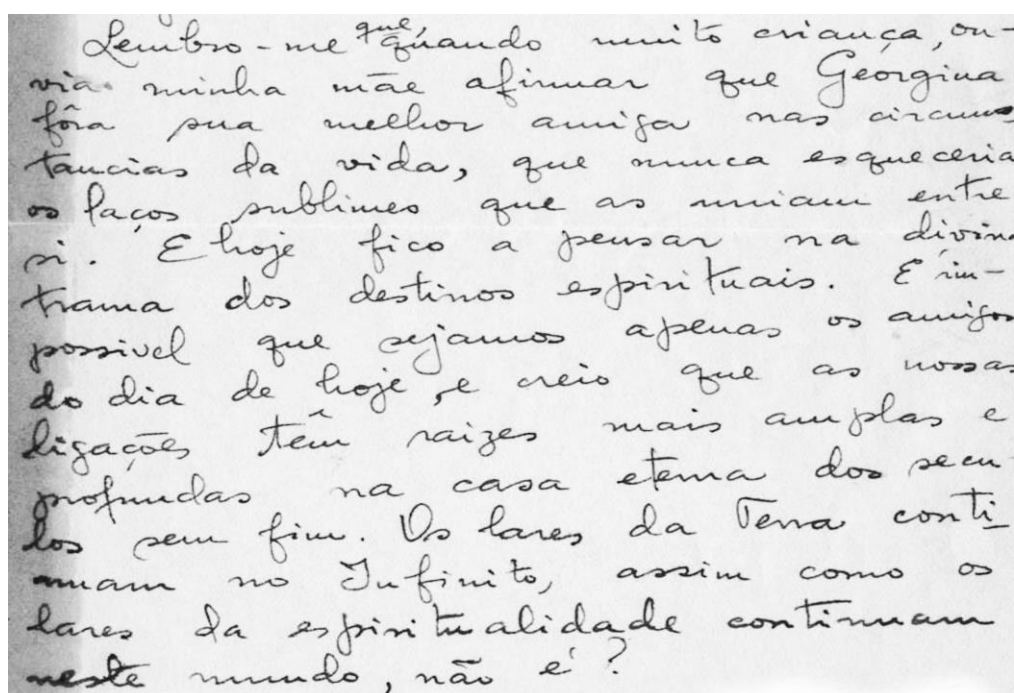 Lembro-me que, quando muito criança, ou-
via minha mãe afirmar que Georgina
fôra sua melhor amiga nas circuns
tancias da vida, que nunca esqueceria
os laços sublimes que as uniam entre
si. E hoje fico a pensar na divina
trama dos destinos espirituais. E' im-
possivel que sejamos apenas os amigos
do dia de hoje, e creio que as nossas
ligações têm raizes mais amplas e
profundas na casa eterna dos secu
los sem fim. Os lares da Terra conti-
nuam no Infinito, assim como os
lares da espiritualidade continuam
neste mundo, não é?